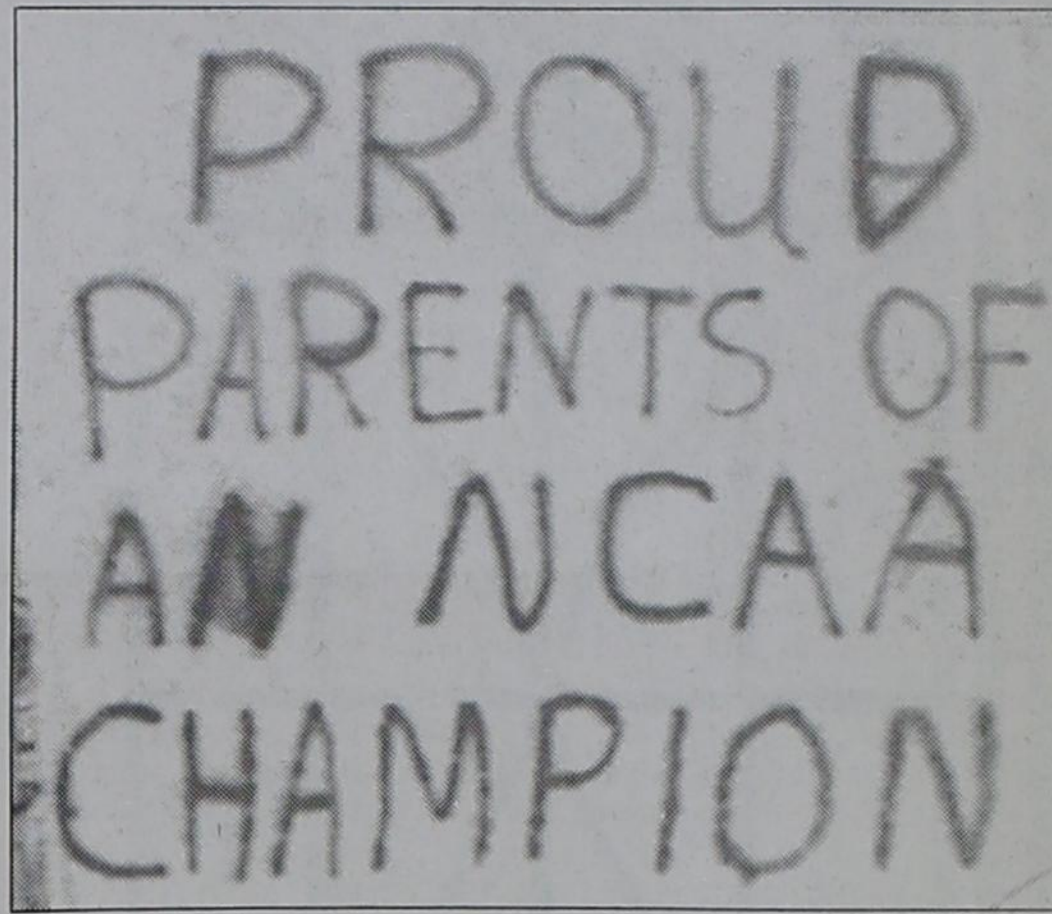 PROUD
PARENTS OF
AN NCAA
CHAMPION